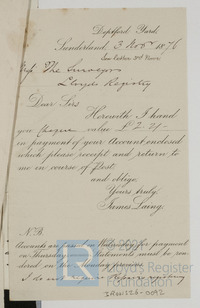 Deptford Yard,
Sunderland, 3 Novr 1876
The Surveyors
Lloyds Registry
Dear Sirs,
Herewith I hand
you Cheque value £2.2/-
in payment of your Account enclosed
which please receipt and return to
me in course of Post
and oblige
Yours truly,
James Laing
N.B.
Accounts are for payment
on Thursday. Statements must be ren-
dered on the
Lloyd's Register
Foundation